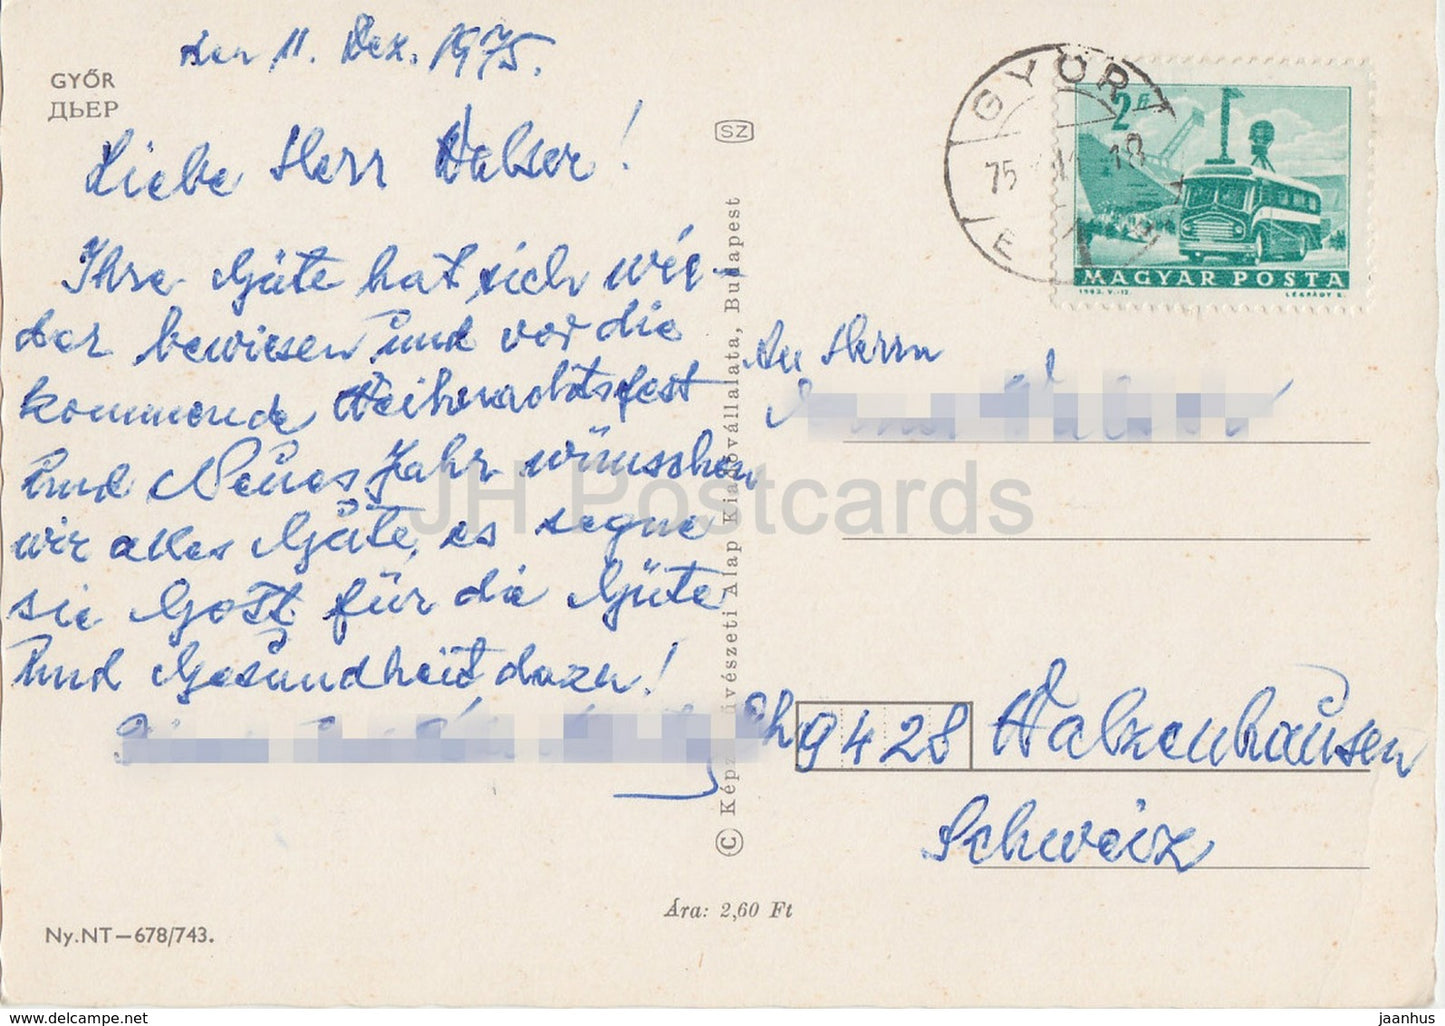 den 11. Dez. 1975.
GYŐR
ДЬЕР
Liebe Herr Walser!
Ihre Güte hat sich wie-
der bewiesen und vor die
kommende Weihnachtsfest
und Neues Jahr wünschen
wir alles Güte, es segne
sie Gott für die Güte
und Gesundheit dazu!
Ny.NT—678/743.
SZ
© Képzőművészeti Alap Kiadóvállalata, Budapest
Ára: 2,60 Ft
GYŐR
75
18
2 ft
MAGYAR POSTA
1963. V.-12.
LÉGRÁDY S.
An Herrn
Ch 9428 Walzenhausen
Schweiz
JH Postcards
www.delcampe.net
jaanhus